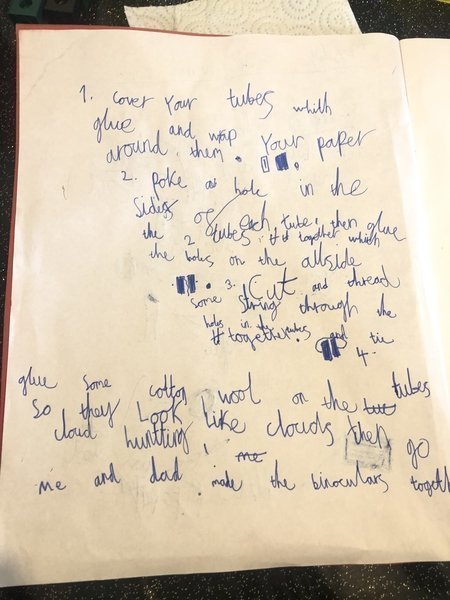 1. cover your tubes which
glue and wrap your paper
around them.
2. poke a hole in the
sides of each tube, then glue
the 2 tubes together which
the holes on the
3. Cut and thread
some string through the
holes in the tubes and tie
together.
4.
glue some cotton wool on the tubes
so they Look like clouds then go
cloud huntting!
me and dad made the binoculars togeth